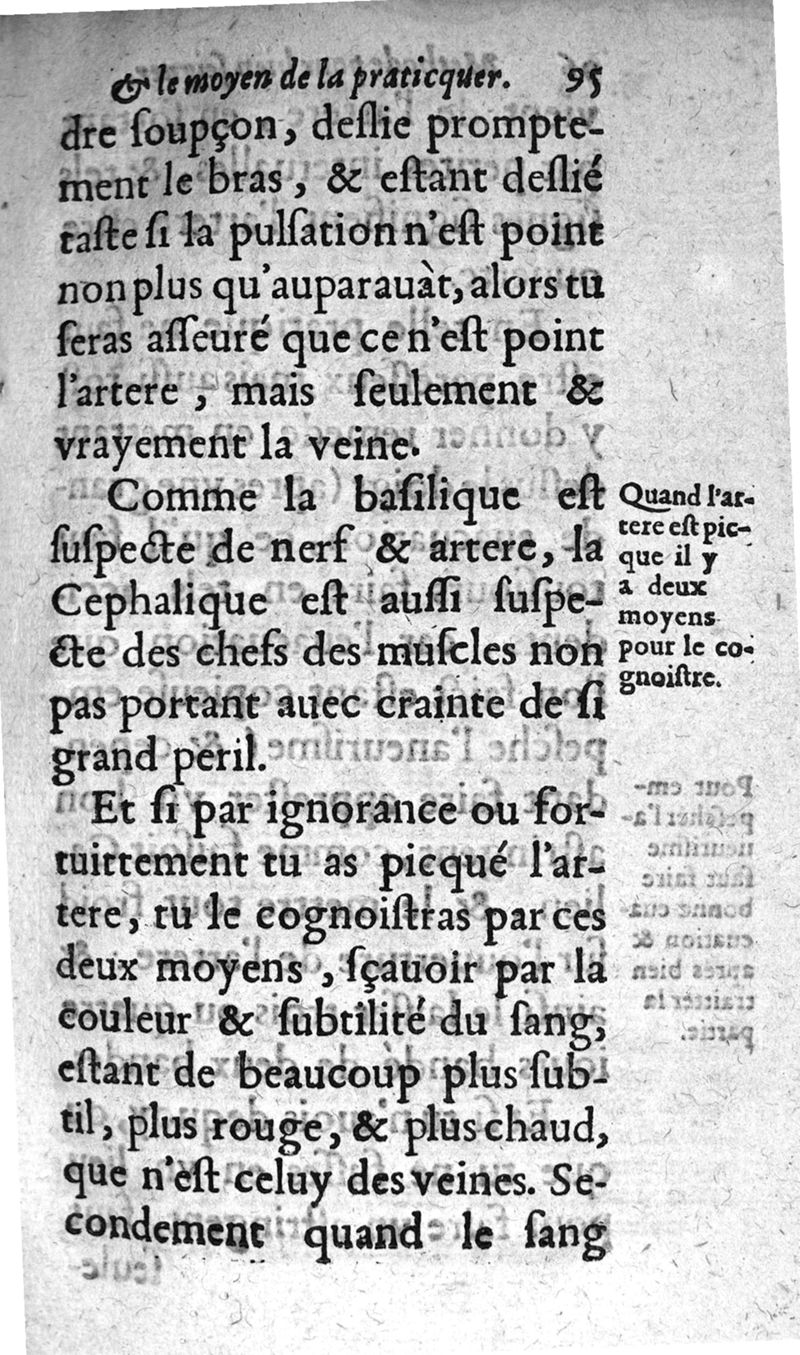 & le moyen de la praticquer. 95
dre ſoupçon, deſlie prompte-
ment le bras, & eſtant deſlié
taſte ſi la pulſation n'eſt point
non plus qu'auparauàt, alors tu
ſeras aſſeuré que ce n'eſt point
l'artere, mais ſeulement &
vrayement la veine.
Comme la baſilique eſt
ſuſpecte de nerf & artere, la
Cephalique eſt auſſi ſuſpe-
cte des chefs des muſcles non
pas portant auec crainte de ſi
grand peril.
Quand l'ar-
tere eſt pic-
que il y
a deux
moyens
pour le co-
gnoiſtre.
Et ſi par ignorance ou for-
tuittement tu as picqué l'ar-
tere, tu le cognoiſtras par ces
deux moyens, ſçauoir par la
couleur & ſubtilité du ſang,
eſtant de beaucoup plus ſub-
til, plus rouge, & plus chaud,
que n'eſt celuy des veines. Se-
condement quand le ſang